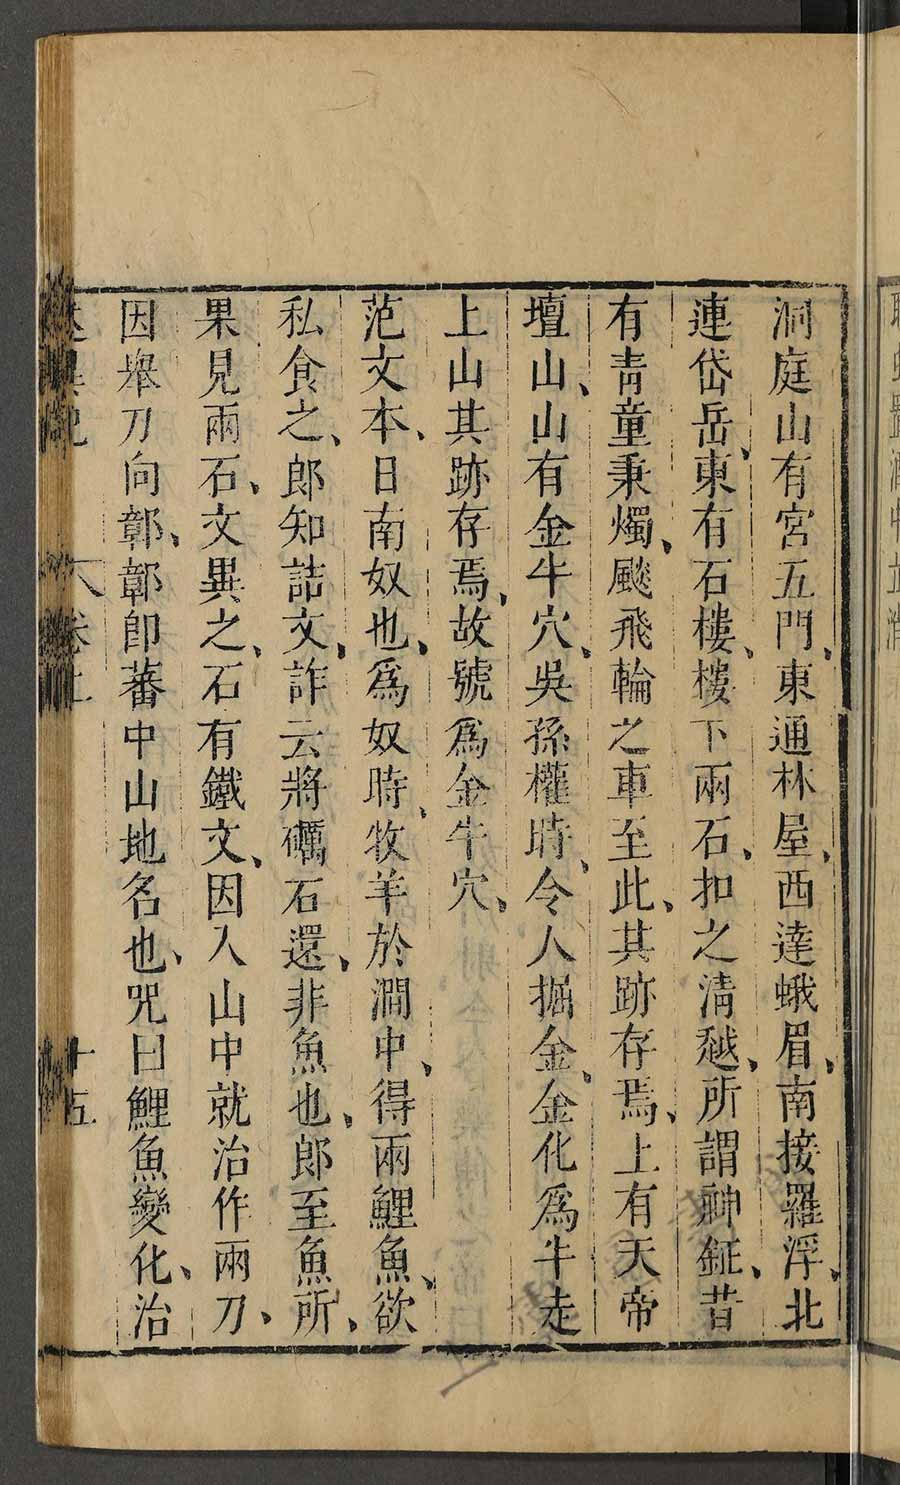 洞庭山有宮五門、東通林屋、西達蛾眉、南接羅浮、北
連岱岳、東有石樓、樓下兩石、扣之清越、所謂神鉦、昔
有青童秉燭、飈飛輪之車至此、其跡存焉、上有天帝
壇山、山有金牛穴、吳孫權時、令人掘金、金化爲牛走
上山其跡存焉、故號爲金牛穴、
范文本、日南奴也、爲奴時、牧羊於澗中、得兩鯉魚、欲
私食之、郎知詰文、詐云將礪石還、非魚也、郎至魚所、
果見兩石、文異之、石有鐵文、因入山中就治作兩刀、
因舉刀向鄣、鄣即蕃中山地名也、咒曰鯉魚變化、治
述異記 卷上 十五